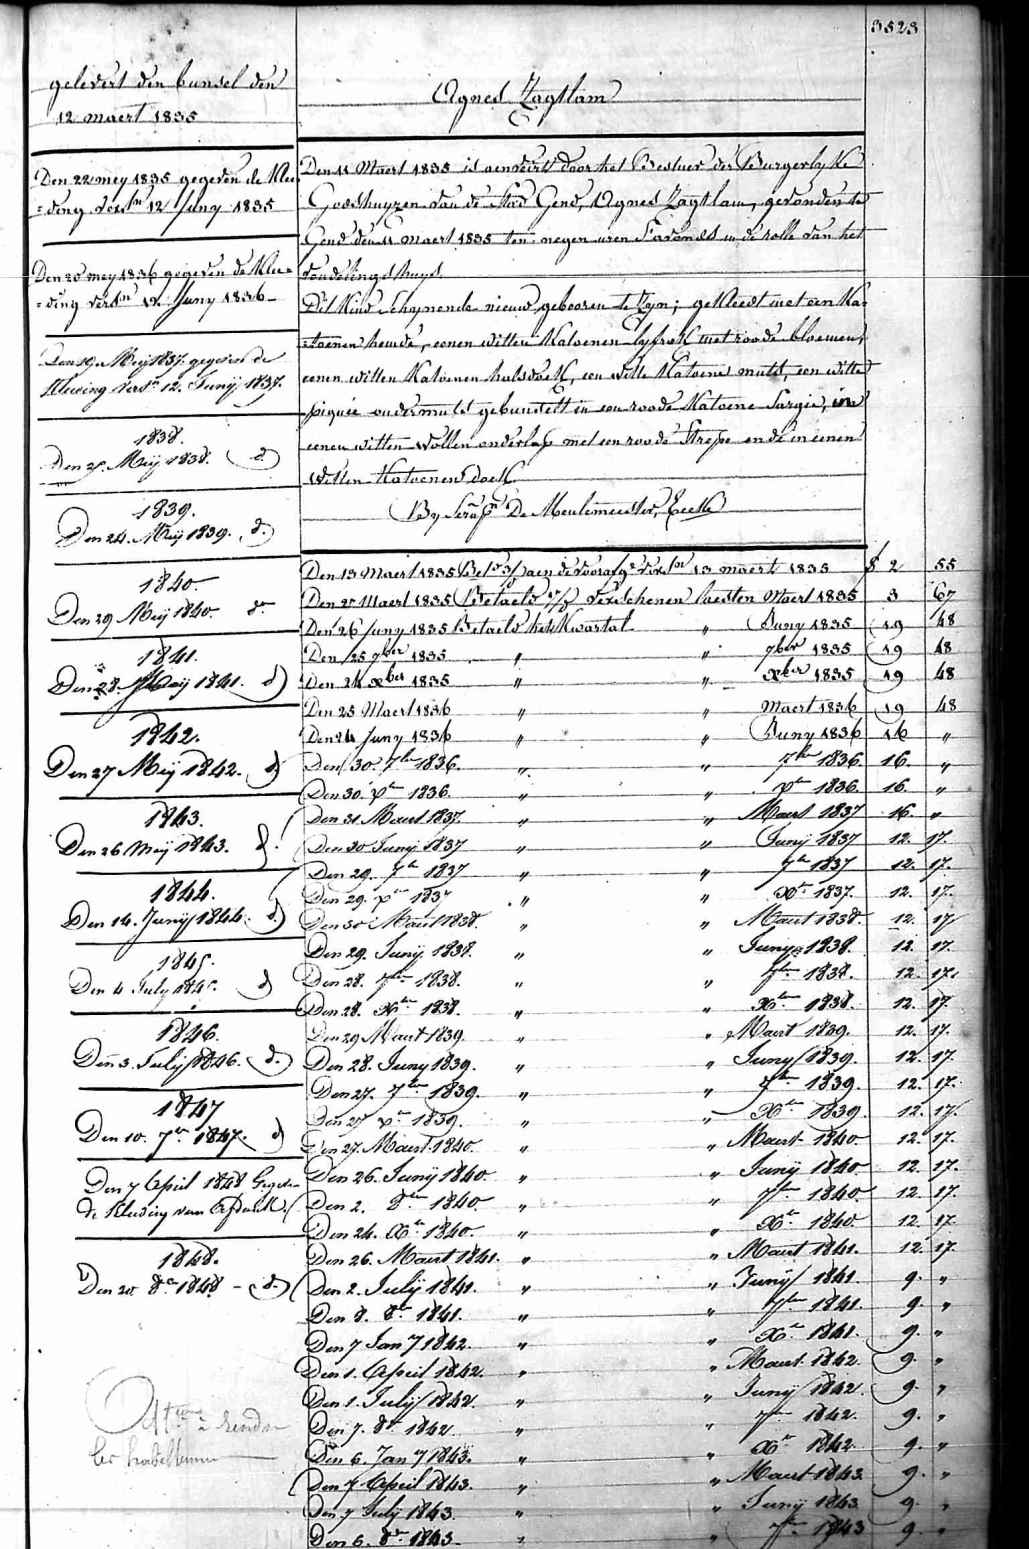 3523
gelevert den bunsel den
12 maert 1835
Agnes Zagtlam
Den 22 mey 1835 gegeven de Klee
=ding versn 12 Juny 1835
Den 20 mey 1836 gegeven de Klee=
=ding versn 12 Juny 1836
Den 19 Meij 1837 gegeven de
Kleeding versn 12. Junij 1837.
1838.
Den 25. Meij 1838. d.
1839.
Den 24. Meij 1839. d.
1840.
Den 29 Meij 1840. do
1841.
Den 28. Meij 1841. d
1842.
Den 27 Meij 1842. d
1843.
Den 26 Meij 1843. d.
1844.
Den 14. Junij 1844. d
1845.
Den 4 July 1845. d
1846.
Den 3. Julij 1846. d.
1847
Den 10. 7er 1847. d
Den 7 April 1848 Gegeven
de Kleeding van
1848.
Den 20 8er 1848 - d.
à rendre
les
Den 11 Maert 1835 is aenveird door het Bestuer der Burgerlyke
Godshuyzen van de Stad Gend, Agnes Zagtlam, gevonden te
Gend den 11 maert 1835 ten negen uren S'avonds in de rolle van het
vondelingshuys
Dit Kind Schynende nieuw gebooren te Zyn; gekleedt met een Ka=
=toenen hemde, eenen witten Katoenen lyfrok met roode bloemen,
eenen witten Katoenen halsdoek, een witte Katoene muts, een witte
piquée ondermuts gebunselt in een roode Katoene Sargie, in
eenen witten wollen onderlap met een roode Strepe en de in eenen
witten Katoenen doek
By Seraph De Meulemeester, Eecke
Den 13 Maert 1835 13 maert 1835 f 2 55
Den 27 Maert 1835 Betaeld verschenen laesten Maert 1835 3 67
Den 26 Juny 1835 Betaeld het Kwartal " Juny 1835 19 48
Den 25 7ber 1835 " " 7ber 1835 19 48
Den 24 xber 1835 " " xber 1835 19 48
Den 25 Maert 1836 " " Maert 1836 19 48
Den 24 Juny 1836 " " Juny 1836 16 "
Den 30. 7br 1836. " " 7br 1836. 16. "
Den 30. Xbr 1836. " " Xbr 1836. 16. "
Den 31 Maert 1837 " " Maert 1837 16. "
Den 30 Junij 1837 " " Junij 1837 12. 17.
Den 29. 7br 1837 " " 7br 1837 12. 17.
Den 29. Xbr 1837 " " Xbr 1837. 12. 17.
Den 30 Maert 1838. " " Maert 1838. 12. 17
Den 29. Junij 1838. " " Junij 1838. 12. 17.
Den 28. 7br 1838. " " 7br 1838. 12. 17.
Den 28. Xbr 1838. " " Xbr 1838. 12. 17.
Den 29 Maert 1839. " " Maert 1839. 12. 17.
Den 28. Juny 1839. " " Juny 1839. 12. 17.
Den 27. 7br 1839. " " 7br 1839. 12. 17.
Den 27 Xbr 1839. " " Xbr 1839. 12. 17.
Den 27. Maert. 1840. " " Maert 1840. 12. 17.
Den 26. Junij 1840. " " Junij 1840. 12. 17.
Den 2. 8br 1840. " " 7br 1840 12. 17.
Den 24. Xbr 1840. " " Xbr 1840 12. 17.
Den 26. Maert 1841. " " Maert 1841. 12. 17.
Den 2. Julij 1841. " " Junij 1841. 9. "
Den 8. 8br 1841. " " 7br 1841. 9. "
Den 7 Jany 1842. " " Xbr 1841. 9. "
Den 1. April 1842. " " Maert 1842. 9. "
Den 1. Julij 1842. " " Junij 1842 9. "
Den 7. 8br 1842. " " 7br 1842. 9. "
Den 6. Jany 1843. " " Xbr 1842. 9. "
Den 7 April 1843. " " Maert 1843. 9. "
Den 7 Julij 1843. " " Junij 1843 9. "
Den 6. 8br 1843. " " 7br 1843 9. "